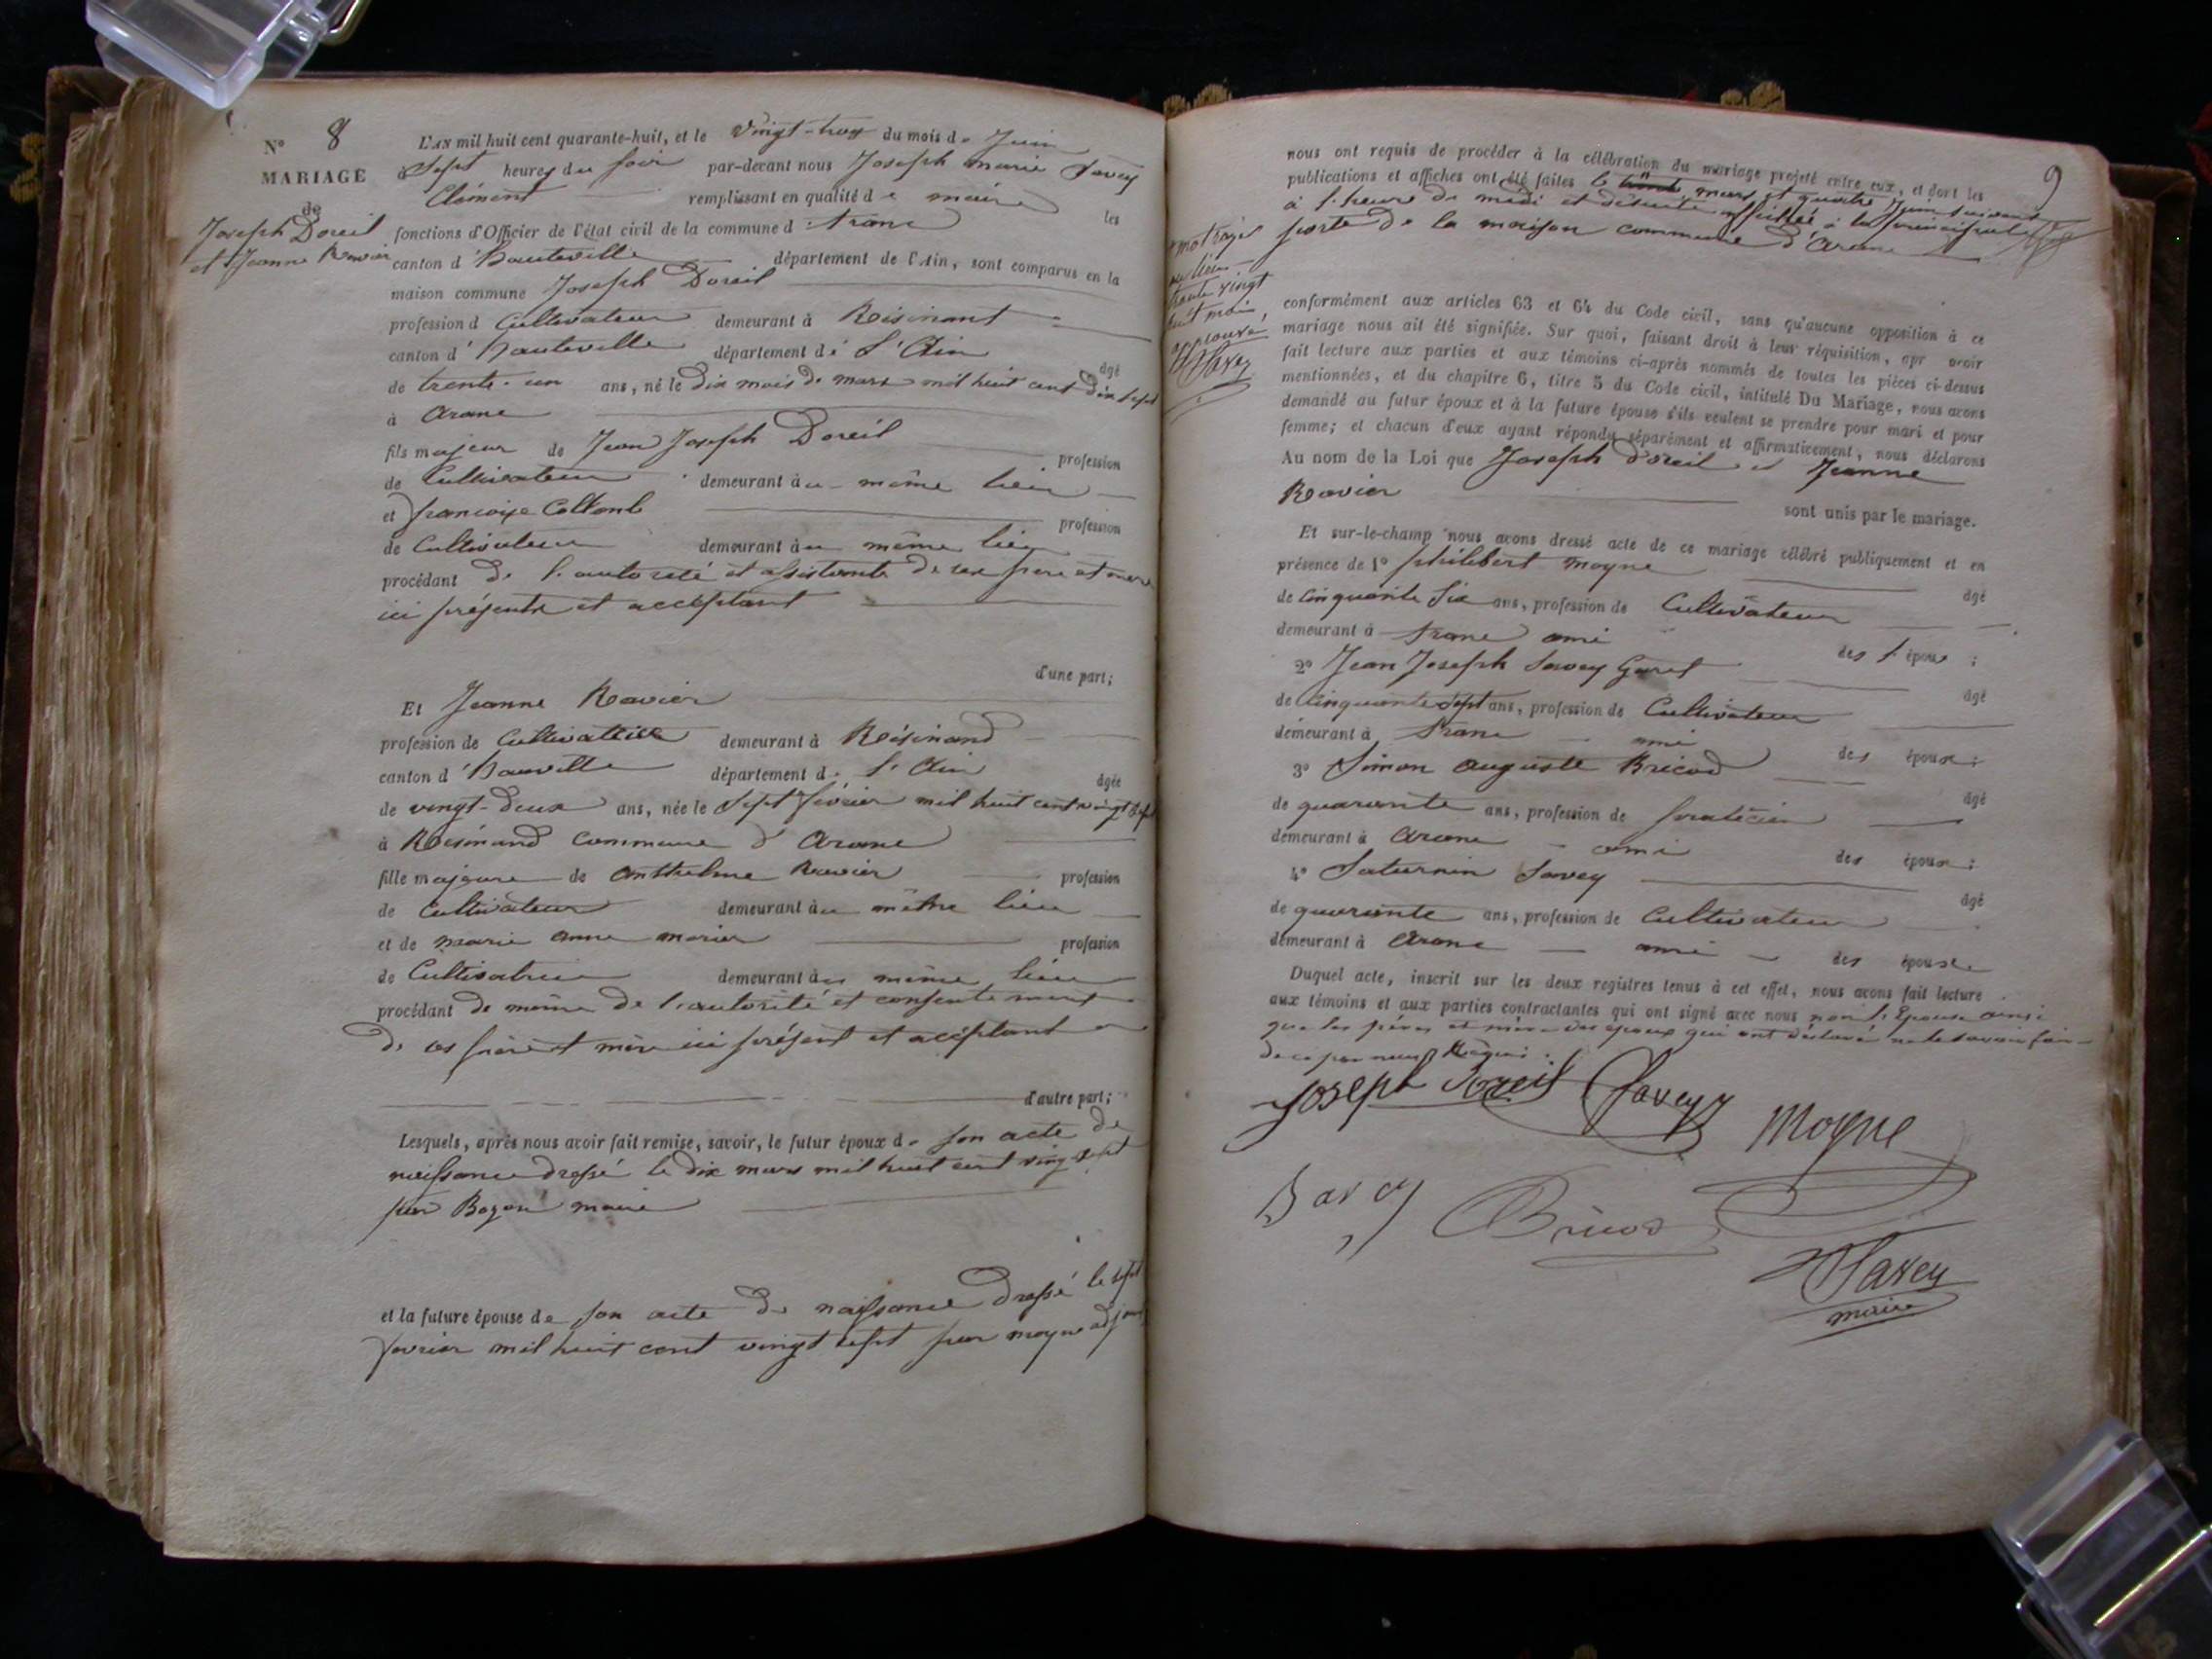 N° 8
MARIAGE
de
Joseph Doreil
et Jeanne Ravier
L'AN mil huit cent quarante-huit, et le Vingt-trois du mois de Juin
à Sept heures du soir par-devant nous Joseph marie Savey
Clément remplissant en qualité de maire les
fonctions d'Officier de l'état civil de la commune d'Arane
canton d'hauteville département de l'Ain, sont comparus en la
maison commune Joseph Doreil
profession d Cultivateur demeurant à Résinant
canton d'hauteville département de L'Ain âgé
de trente-un ans, né le Dix mois de mars mil huit cent dix sept
à Arane
fils majeur de Jean Joseph Doreil profession
de Cultivateur demeurant au même lieu
et françoise Collomb profession
de Cultivateur demeurant au même lieu
procédant de l'autorité et assistante de ses pere et mere
ici présents et acceptant
d'une part;
Et Jeanne Ravier
profession de Cultivatrice demeurant à Résinand
canton d'hauville département de L'Ain âgée
de vingt-deux ans, née le Sept février mil huit cent vingt sept
à Résinand commune d'Arane
fille majeure de Anthelme Ravier profession
de Cultivateur demeurant au même lieu
et de marie anne profession
de Cultivatrice demeurant au même lieu
procédant de même de l'autorité et consentement
de ses père et mère ici présent et acceptant
d'autre part;
Lesquels, après nous avoir fait remise, savoir, le futur époux de son acte de
naissance dressé le dix mars mil huit cent
par maire
et la future épouse de son acte de naissance dressé le sept
fevrier mil huit cent vingt sept par moyne adjoint
9
nous ont requis de procéder à la célébration du mariage projeté entre eux, et dont les
publications et affiches ont été faites le mars et quatre Juin suivant
à l'heure de midi et désuite affichés à la principale
porte de la maison commune d'Arane
mot rayé
au lieu
vingt
huit mai
approuvé
Savey
conformément aux articles 63 et 64 du Code civil, sans qu'aucune opposition à ce
mariage nous ait été signifiée. Sur quoi, faisant droit à leur réquisition, apr avoir
fait lecture aux parties et aux témoins ci-après nommés de toutes les pièces ci-dessus
mentionnées, et du chapitre 6, titre 5 du Code civil, intitulé Du Mariage, nous avons
demandé au futur époux et à la future épouse s'ils veulent se prendre pour mari et pour
femme; et chacun d'eux ayant répondu séparément et affirmativement, nous déclarons
Au nom de la Loi que Joseph Doreil et Jeanne
Ravier sont unis par le mariage.
Et sur-le-champ nous avons dressé acte de ce mariage célébré publiquement et en
présence de 1° philibert moyne âgé
de Cinquante Six ans, profession de Cultivateur
demeurant à Arane ami des époux;
2° Jean Joseph Savey Guret âgé
de Cinquante Sept ans, profession de Cultivateur
demeurant à Arane ami des époux;
3° Simon Auguste Bricod âgé
de quarante ans, profession de praticien
demeurant à Arane ami des époux;
4° Saturnin Savey âgé
de quarante ans, profession de Cultivateur
demeurant à Arane ami des époux
Duquel acte, inscrit sur les deux registres tenus à cet effet, nous avons fait lecture
aux témoins et aux parties contractantes qui ont signé avec nous non l'Epouse ainsi
que les pères et mères des époux qui ont déclaré ne le savoir faire
de ce par nous Réquis.
Joseph Doreil Savey Moyne
Savey Bricod
Savey
maire